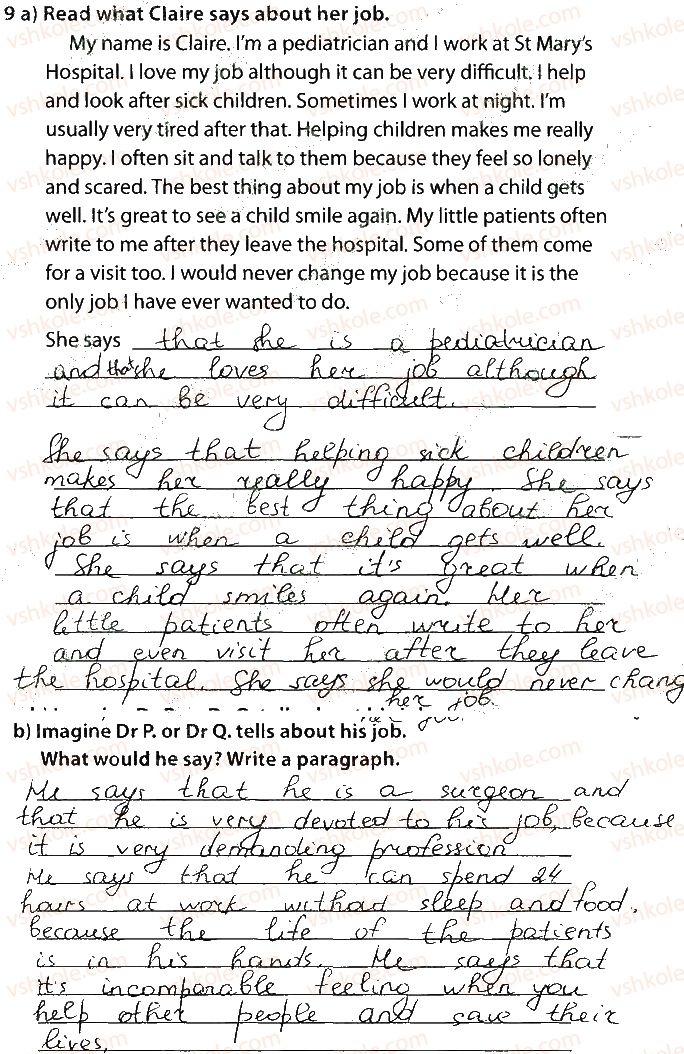 9 a) Read what Claire says about her job.
My name is Claire. I'm a pediatrician and I work at St Mary's
Hospital. I love my job although it can be very difficult. I help
and look after sick children. Sometimes I work at night. I'm
usually very tired after that. Helping children makes me really
happy. I often sit and talk to them because they feel so lonely
and scared. The best thing about my job is when a child gets
well. It's great to see a child smile again. My little patients often
write to me after they leave the hospital. Some of them come
for a visit too. I would never change my job because it is the
only job I have ever wanted to do.
She says that she is a pediatrician
and that she loves her job although
it can be very difficult.
She says that helping sick children
makes her really happy. She says
that the best thing about her
job is when a child gets well.
She says that it's great when
a child smiles again. Her
little patients often write to her
and even visit her after they leave
the hospital. She says she would never chang
her job.
b) Imagine Dr P. or Dr Q. tells about his job.
What would he say? Write a paragraph.
He says that he is a surgeon and
that he is very devoted to his job, because
it is very demanding profession
He says that he can spend 24
hours at work without sleep and food,
because the life of the patients
is in his hands. He says that
it's incomparable feeling when you
help other people and save their
lives.